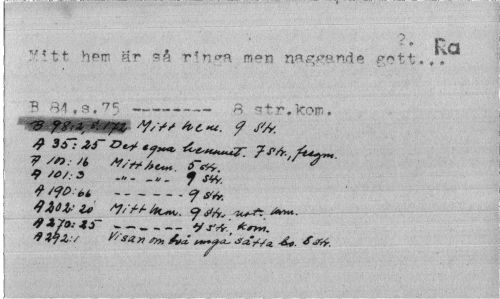 2. Ra
Mitt hem är så ringa men naggande gott...
B 84.s.75 -------- 8 str.kom.
B 98:2, s.172 Mitt hem. 9 str.
A 35:25 Det egna hemmet. 7 str, fragm.
A 101:16 Mitt hem. 5 str.
A 101:3 -"- -"- 9 str.
A 190:66 - - - - - - 9 str.
A 202:20 Mitt hem. 9 str, not. kom.
A 270:25 - - - - - - 4 str, kom.
A 292:1 Visan om två unga sätta bo. 5 str.